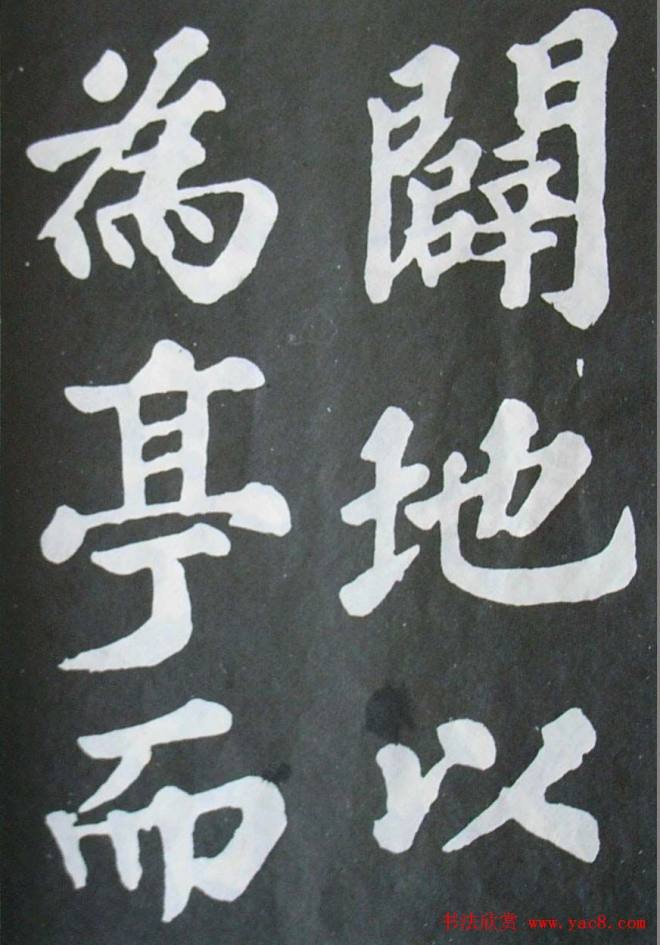 闢地以
為亭而
书法欣赏 www.yac8.com